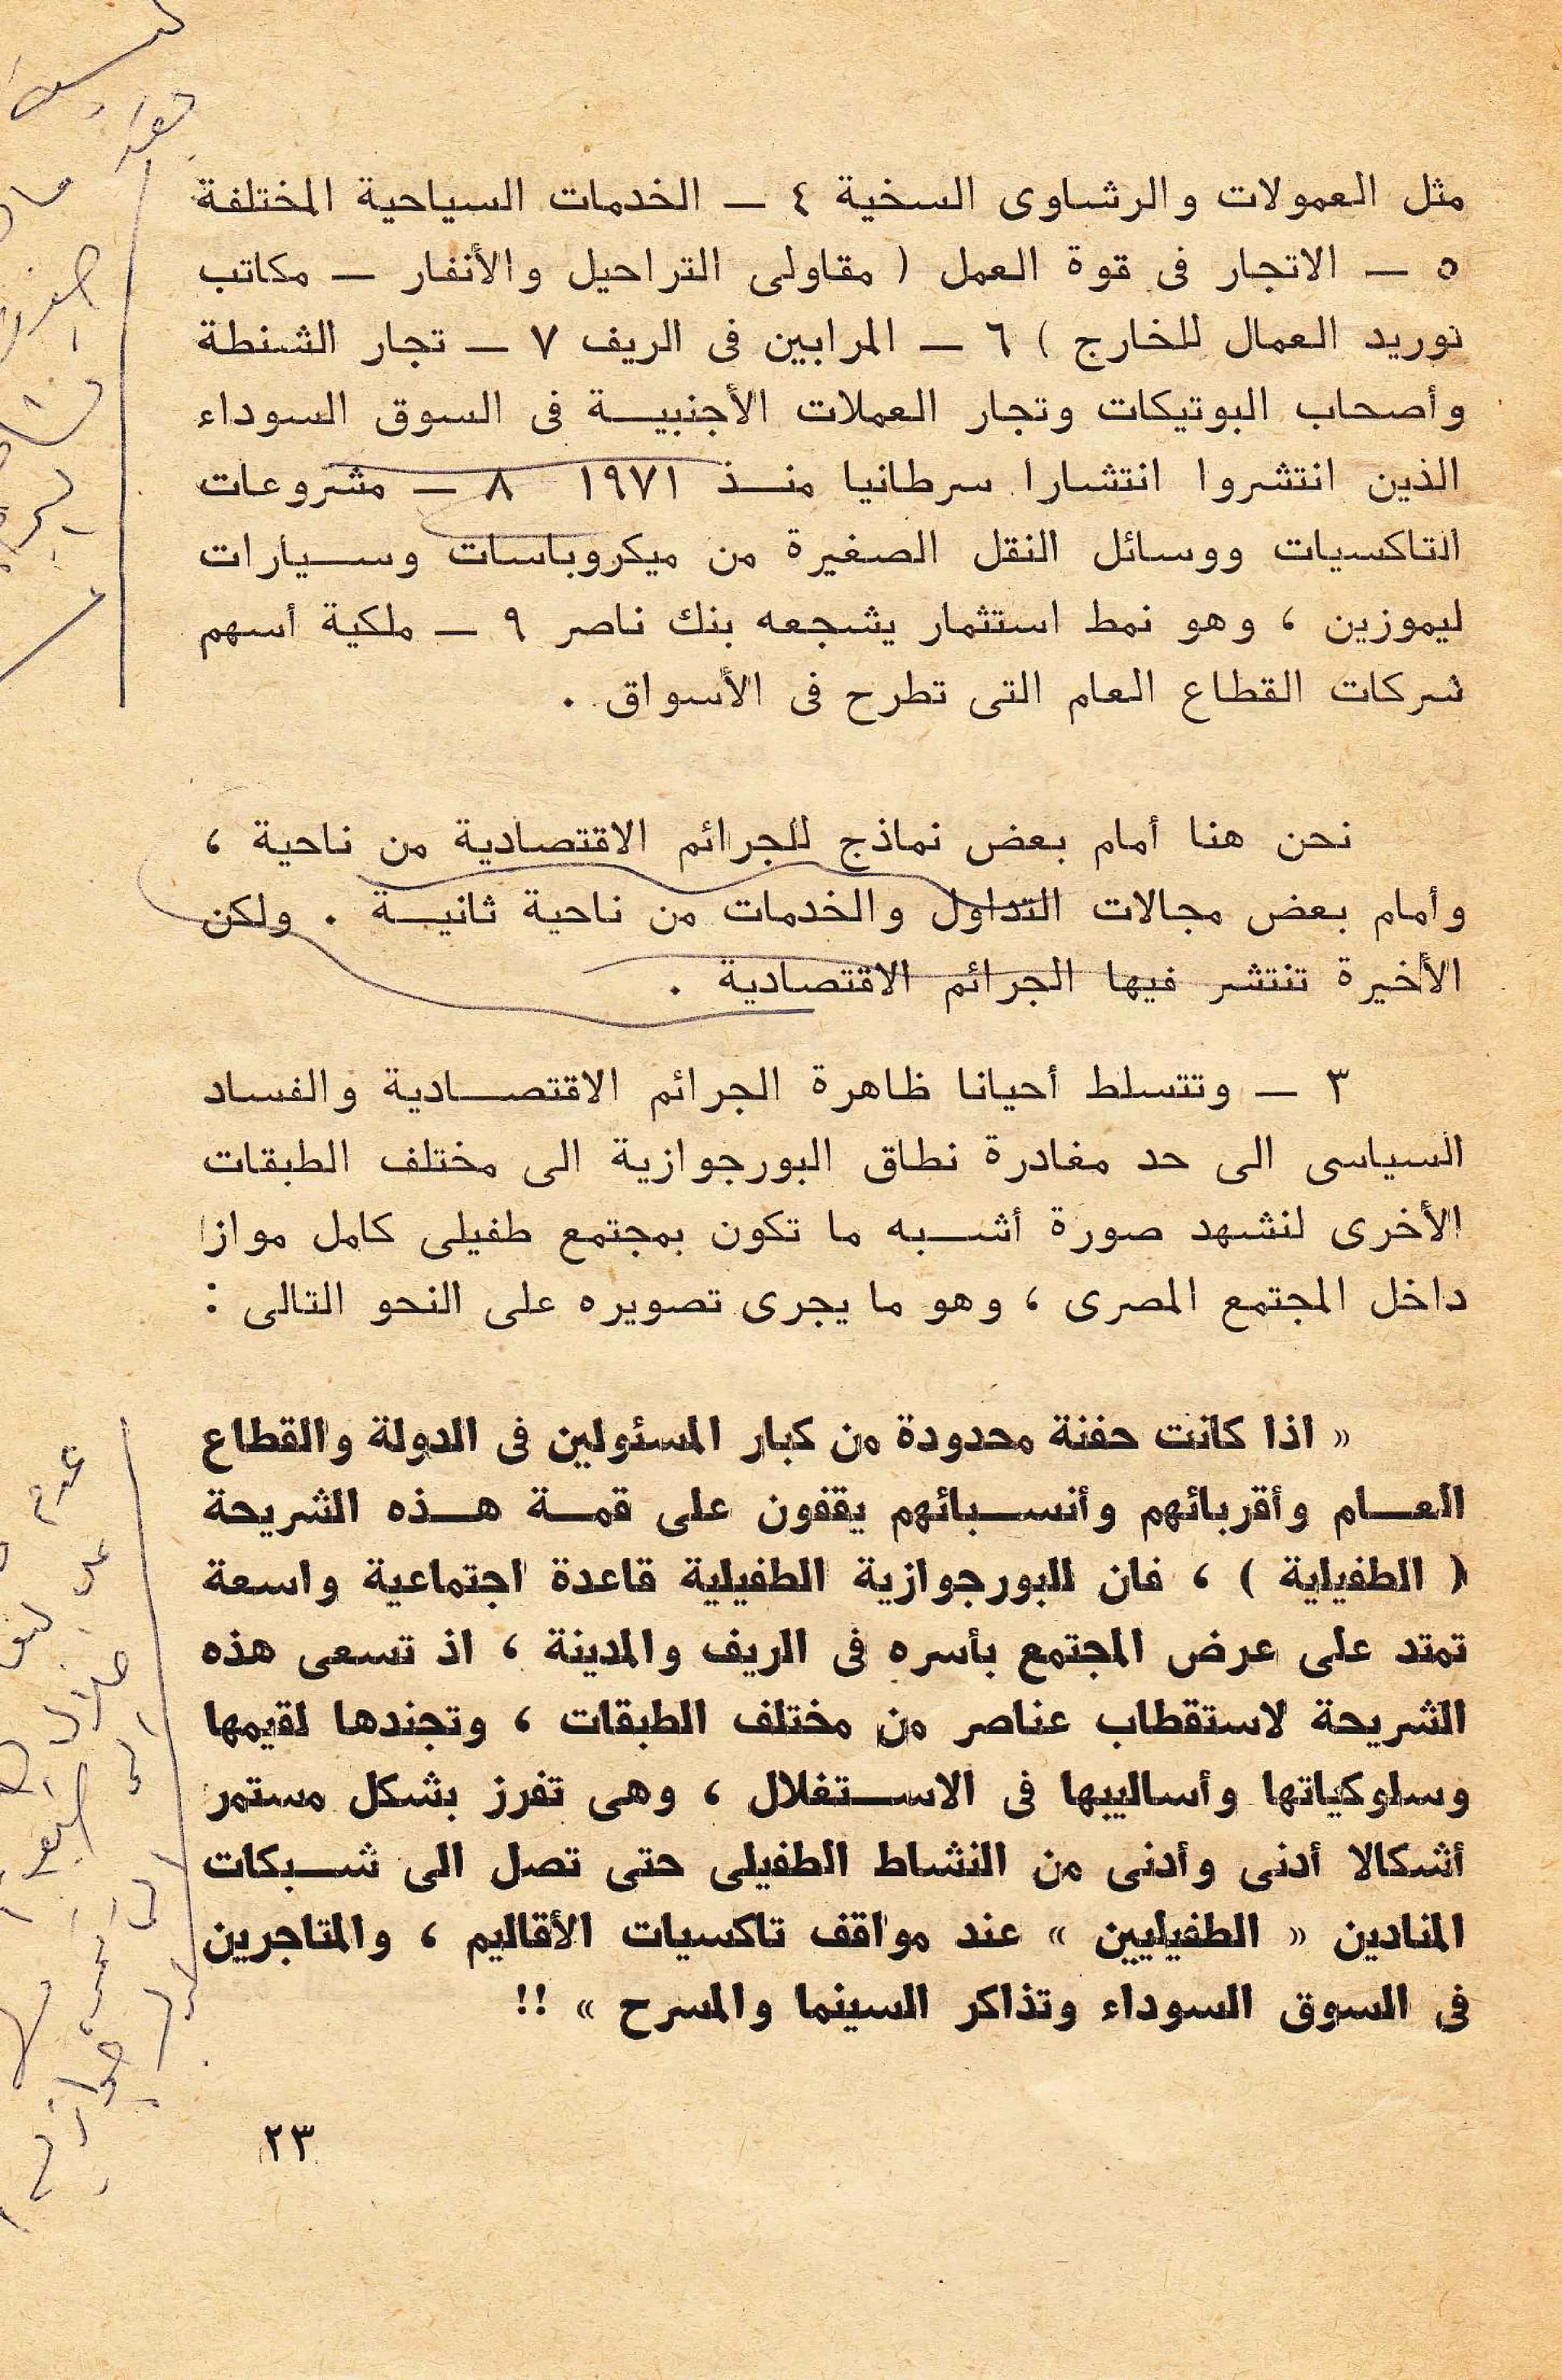 مثل العمولات والرشاوى السخية ٤ ــ الخدمات السياحية المختلفة
٥ ــ الاتجار فى قوة العمل ( مقاولى التراحيل والأنفار ــ مكاتب
توريد العمال للخارج ) ٦ ــ المرابين فى الريف ٧ ــ تجار الشنطة
وأصحاب البوتيكات وتجار العملات الأجنبيـــة فى السوق السوداء
الذين انتشروا انتشارا سرطانيا منــذ ١٩٧١ ٨ ــ مشروعات
التاكسيات ووسائل النقل الصغيرة من ميكروباسات وســيارات
ليموزين ، وهو نمط استثمار يشجعه بنك ناصر ٩ ــ ملكية أسهم
شركات القطاع العام التى تطرح فى الأسواق .
نحن هنا أمام بعض نماذج للجرائم الاقتصادية من ناحية ،
وأمام بعض مجالات التداول والخدمات من ناحية ثانيــة . ولكن
الأخيرة تنتشر فيها الجرائم الاقتصادية .
٣ ــ وتتسلط أحيانا ظاهرة الجرائم الاقتصــادية والفساد
السياسى الى حد مغادرة نطاق البورجوازية الى مختلف الطبقات
الأخرى لنشهد صورة أشــبه ما تكون بمجتمع طفيلى كامل موازا
داخل المجتمع المصرى ، وهو ما يجرى تصويره على النحو التالى :
« اذا كانت حفنة محدودة من كبار المسئولين فى الدولة والقطاع
العــام وأقربائهم وأنســبائهم يقفون على قمــة هــذه الشريحة
( الطفيلية ) ، فان للبورجوازية الطفيلية قاعدة اجتماعية واسعة
تمتد على عرض المجتمع بأسره فى الريف والمدينة ، اذ تسعى هذه
الشريحة لاستقطاب عناصر من مختلف الطبقات ، وتجندها لقيمها
وسلوكياتها وأساليبها فى الاســتغلال ، وهى تفرز بشكل مستمر
أشكالا أدنى وأدنى من النشاط الطفيلى حتى تصل الى شــبكات
المنادين « الطفيليين » عند مواقف تاكسيات الأقاليم ، والمتاجرين
فى السوق السوداء وتذاكر السينما والمسرح » !!
٢٣